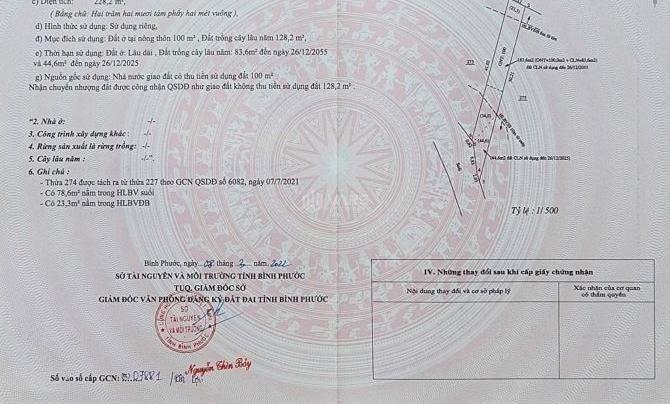 c) Diện tích: 228,2 m²,
( Bằng chữ: Hai trăm hai mươi tám phẩy hai mét vuông ),
d) Hình thức sử dụng: Sử dụng riêng,
đ) Mục đích sử dụng: Đất ở tại nông thôn 100 m² , Đất trồng cây lâu năm 128,2 m²,
e) Thời hạn sử dụng: Đất ở: Lâu dài , Đất trồng cây lâu năm: 83,6m² đến ngày 26/12/2055
và 44,6m² đến ngày 26/12/2025
g) Nguồn gốc sử dụng: Nhà nước giao đất có thu tiền sử dụng đất 100 m²
Nhận chuyển nhượng đất được công nhận QSDĐ như giao đất không thu tiền sử dụng đất 128,2 m² .
"2. Nhà ở: -/-
3. Công trình xây dựng khác : -/-
4. Rừng sản xuất là rừng trồng: -/-
5. Cây lâu năm : -/-".
6. Ghi chú :
- Thửa 274 được tách ra từ thửa 227 theo GCN QSDĐ số 6082, ngày 07/7/2021
- Có 78,6m² nằm trong HLBV suối
- Có 23,3m² nằm trong HLBVĐB
273
275
(34,0)
(44,6)
Suối
Tỷ lệ : 1/ 500
Bình Phước, ngày 08 tháng 3 năm 2022
SỞ TÀI NGUYÊN VÀ MÔI TRƯỜNG TỈNH BÌNH PHƯỚC
TUQ. GIÁM ĐỐC SỞ
GIÁM ĐỐC VĂN PHÒNG ĐĂNG KÝ ĐẤT ĐAI TỈNH BÌNH PHƯỚC
SỞ
TÀI NGUYÊN
VÀ MÔI TRƯỜNG
TỈNH BÌNH PHƯỚC
Nguyễn Thìn Bảy
Số vào sổ cấp GCN:
IV. Những thay đổi sau khi cấp giấy chứng nhận
Nội dung thay đổi và cơ sở pháp lý
Xác nhận của cơ quan
có thẩm quyền